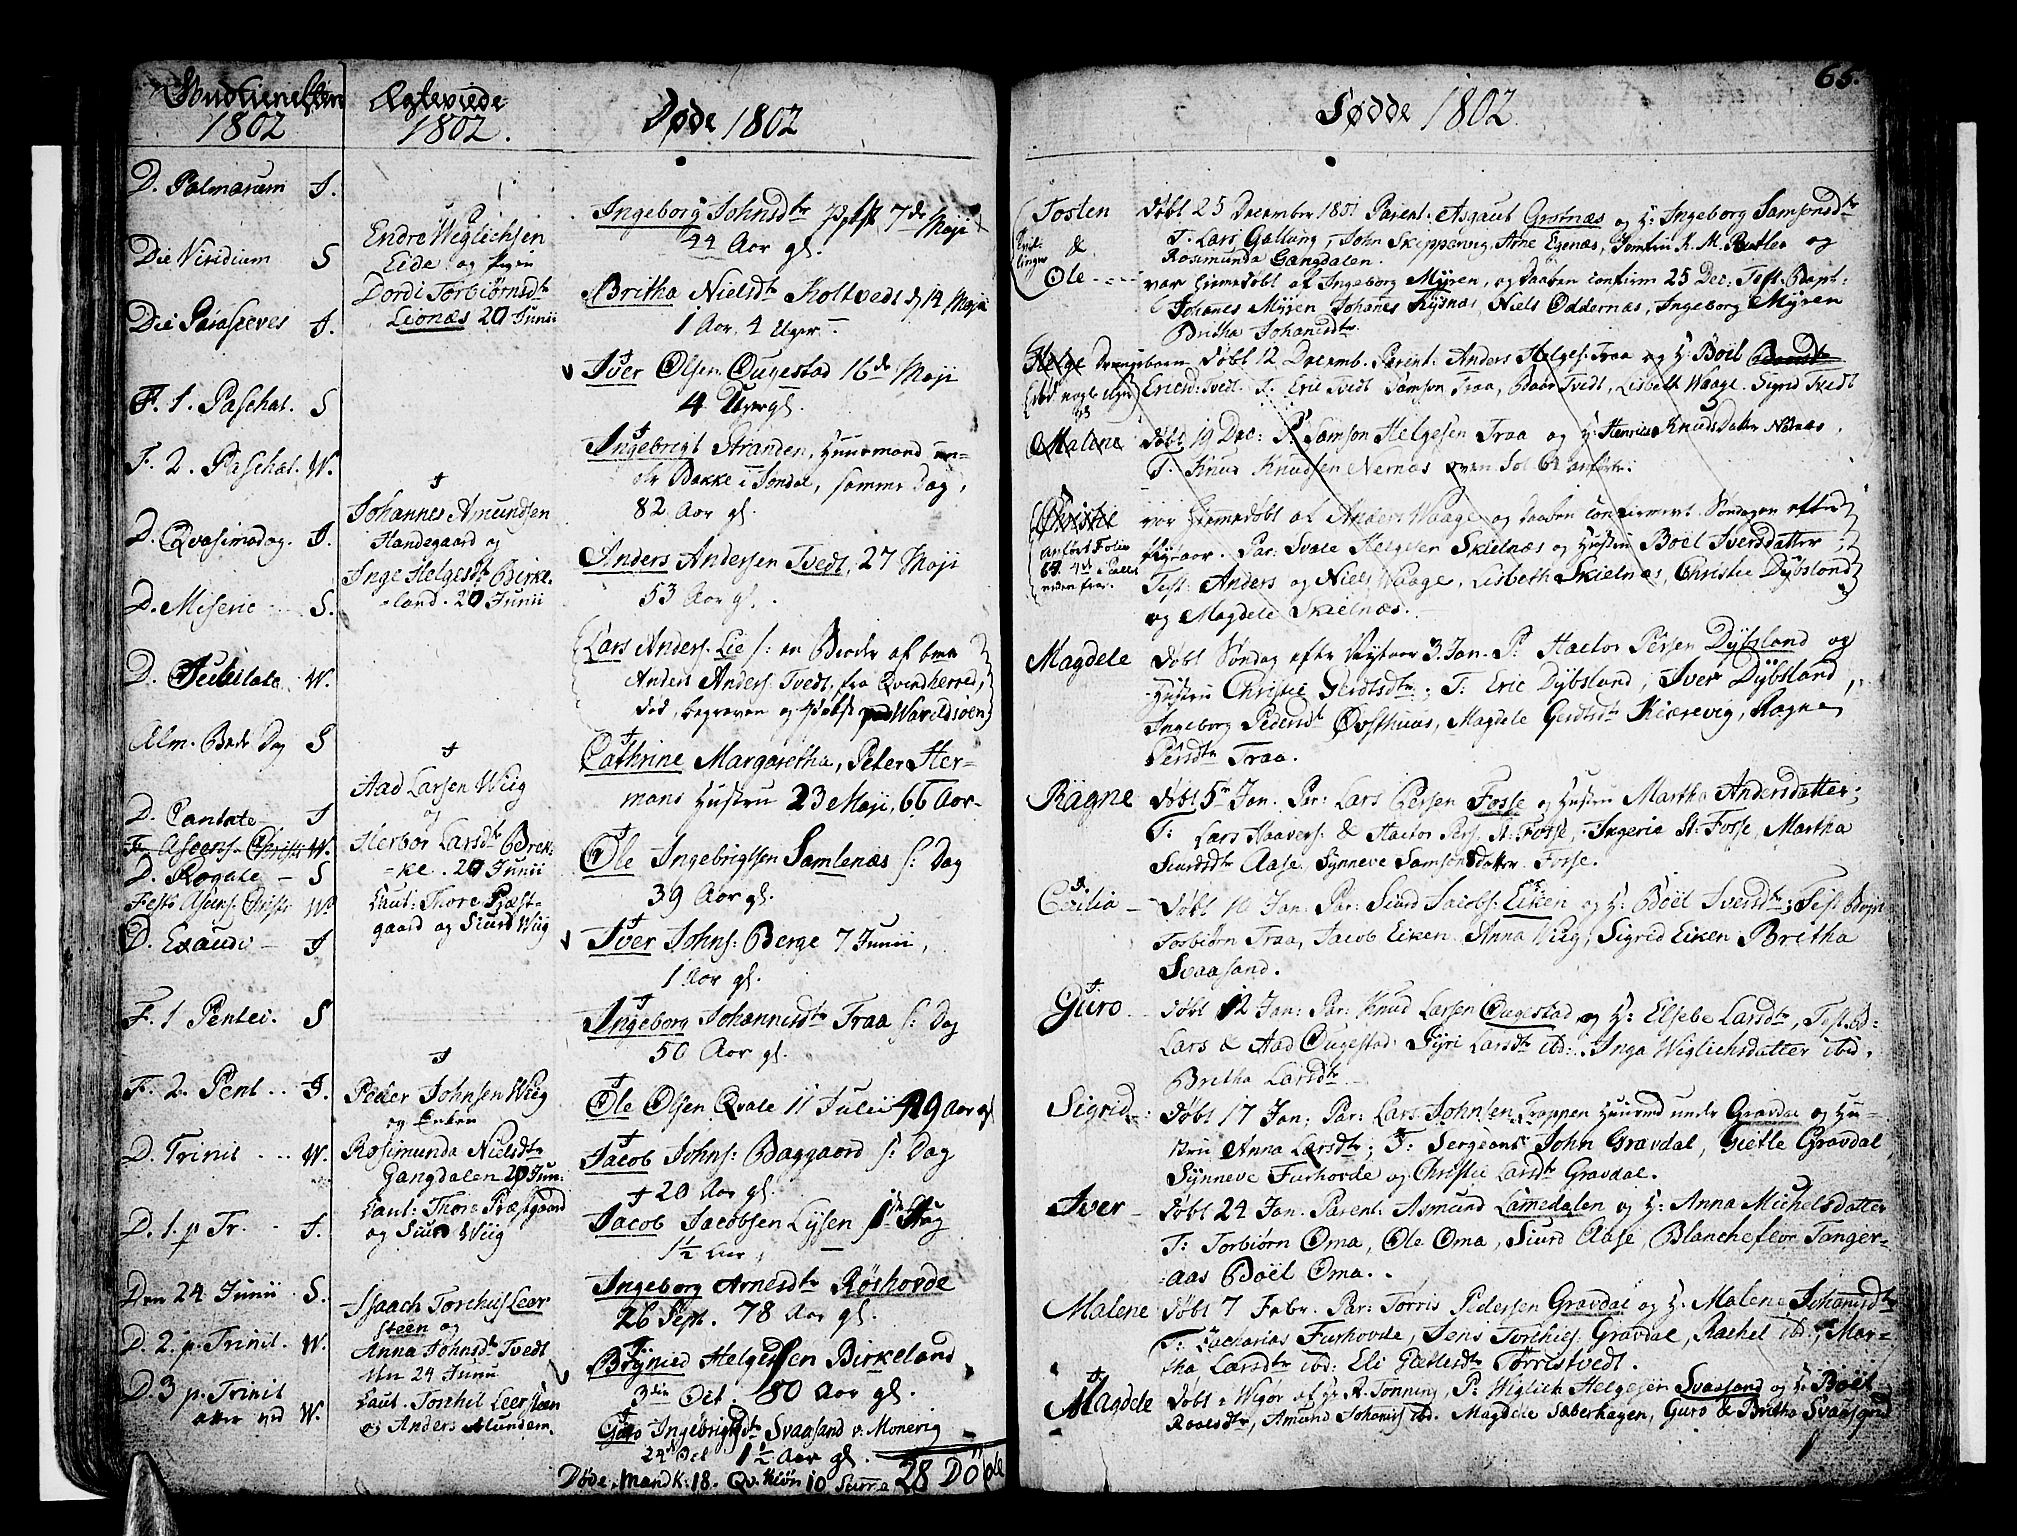 1802
D. Palmarum J.
Die Viridium S
Die Parasceves J.
F. 1. Paschat. S
F. 2. Paschat. W.
D. Qvasimodog. J.
D. Miseric S.
D. Jubilate W.
Alm. Bede Dag S
D. Cantate J
F. Ascens. Christi W.
D. Rogate S
Fest. Ascens. Christi W.
D. Exaudi J
F. 1 Pentec. S
F. 2. Pent J.
D. Trinit W.
D. 1. p Tr. J.
Den 24 Junii S.
D. 2. p. Trinit. W.
D. 3 p. Trinit
W.
Ægteviede
1802.
Endre Weglichsen
Eide og Pigen
Dordi Torbiørnsdtr
Lionæs 20 Junii
Johannes Amundsen
Handegaard og
Inge Helgesdtr Birke-
land. 20 Junii
Aad Larsen Wiig
og
Herbor Larsdtr Brek-
ke. 20 Junii
Caut: Thore Præst-
gaard og Siurd Wiig
Peder Johnsen Wiig
og Enken
Rosimunda Nielsdtr
Gangdalen 20 Jun:
Caut: Thore Præstgaard
og Siurd Wiig
Isaach Torchils Leer
steen og
Anna Johnsdtr Tvedt
den 24 Junii
Caut. Torchil Leersteen
og Anders Alundem.
Døde 1802
Ingeborg Johnsdtr 7de Maji
44 Aar gl.
Britha Nielsdtr Koltvedt d 14 Maji
1 Aar, 4 Uger
Iver Olsen Ougestad 16de Maji
4 Uger gl.
Ingebrigt Stranden, Huusmand un-
der Bakke i Jondal, samme Dag,
82 Aar gl.
Anders Andersen Tvedt, 27 Maji
53 Aar gl.
Lars Anders. Lie /: en Broder af bem
Anders Anders: Tvedt, fra Qvindherred,
død, begraven og
Cathrine Margaretha, Peter Her-
mans Hustru 23 Maji, 66 Aar
Ole Ingebrigtsen Samlenæs s: Dag
39 Aar gl.
Iver Johns: Berge 7 Junii,
1 Aar gl.
Ingeborg Johannisdtr Traa s: Dag
50 Aar gl.
Ole Olsen Qvale 11 Julii 49 Aar gl
Jacob Johns: Baggaard s: Dag
20 Aar gl.
Jacob Jacobsen Lysen
1½
Ingeborg Arnesdtr Røshovde
26 Sept. 78 Aar gl.
Brynild Helgesen Birkeland
3die Oct. 80 Aar gl.
Guro Ingebrigtsdtr Svaasand v. Monevig
24 Oct 1½ Aar gl.
Døde, Mandk: 18. Qv. Kiøn 10 Summa 28 Døde
65.
Fødde 1802
Tosten døbt 25 December 1801 Parent: Asgaut Grotnæs og H: Ingeborg Samsonsdtr
& T. Lars Gallung, John Skippanng, Arne Egenæs, Jomfru K. M. Butler og
Tvil-
linger
Rosemunda Gangdalen.
Ole var hiemmedøbt af Ingeborg Myren, og Daaben confirm 25 Dec: Test: Bapt:
Johanes Myren Johanes Rysnæs, Niels Oddernæs, Ingeborg Myren
Britha Johanisdtr.
Helge Drengebarn døbt 12 Decemb. Parent: Anders Helges: Traa og H: Boel
Ericsd: Tvedt. T. Eric Tvedt Samson Traa, Baar Tvedt, Lisbeth Waage. Sigrid Tvedt
Malene døbt 19 Dec: P: Samson Helgesen Traa og H: Henrica Knuds Datter Nernæs.
T. Knud Knudsen Nernæs oven Fol 64 anført:
Christie var hiemmedøbt af Anders Waage og daaben confirmeret Søndagen efter
anført Folio
Nytaar. Par: Svale Helgesen Skielnæs og Hustru Boel Iversdatter;
Test: Anders og Niels Waage, Lisbeth Skielnæs, Christie Dybsland
og Magdele Skielnæs.
Magdele døbt Søndag efter Nytaar 3. Jan. P: Hactor Persen Dybsland og
Hustru Christie Gerdtsdtr; T: Eric Dybsland, Iver Dybsland,
Ingeborg Pedersdtr Øvsthuus, Magdele Gerdtsdtr Kierevig, Ragne
Persdtr Traa.
Ragne døbt 5te Jan. Par: Lars Persen Fosse og Hustru Martha Andersdatter;
T. Lars Haavers: & Hactor Pers. St: Fosse, Ingeria St: Fosse, Martha
Siurdsdtr Aase, Synneve Samsonsdatter Fosse.
Cicilia døbt 10 Jan: Par: Siurd Jacobs: Eiken og H: Boel Iversdtr; Test Bapt
Torbiørn Traa, Jacob Eiken Anna Wiig, Sigrid Eiken Britha
Svaasand.
Guro døbt 12 Jan: Par: Knud Larsen Ougestad og H: Elsebe Larsdtr, Test. B:
Lars & Aad Ougestad: Syri Larsdtr ibd: Inga Wiglichsdatter ibid.
Britha Larsdtr
Sigrid døbt 17 Jan: Par: Lars Johnsen Trappen Huusmd under Gravdal og Hu-
stru Anna Larsdtr; T: Sergeant John Gravdal, Gietle Gravdal
Synneve Furhovde og Christie Larsdtr Gravdal.
Iver døbt 24 Jan. Parent. Asmund Lammedalen og H: Anna Michelsdatter
T: Torbiørn Oma, Ole Oma, Siurd Aase, Blancheflor Tanger-
aas Boel Oma.
Malene døbt 7 Febr. Par: Torris Pedersen Gravdal og H. Malene Johanisdtr
T: Zacharias Furhovde, Jens Torchils: Gravdal, Rachel ibd:, Mar-
tha Larsdtr ibd: Eli Giettlesdtr Torrestvedt.
Magdele døbt i Wigør af Hr. R. Tonning, P: Wiglich Helgesen Svaasand og H: Boel
Roalsdtr, Amund Johanis: ibd. Magdele Saberhagen, Guro & Britha Svaasand